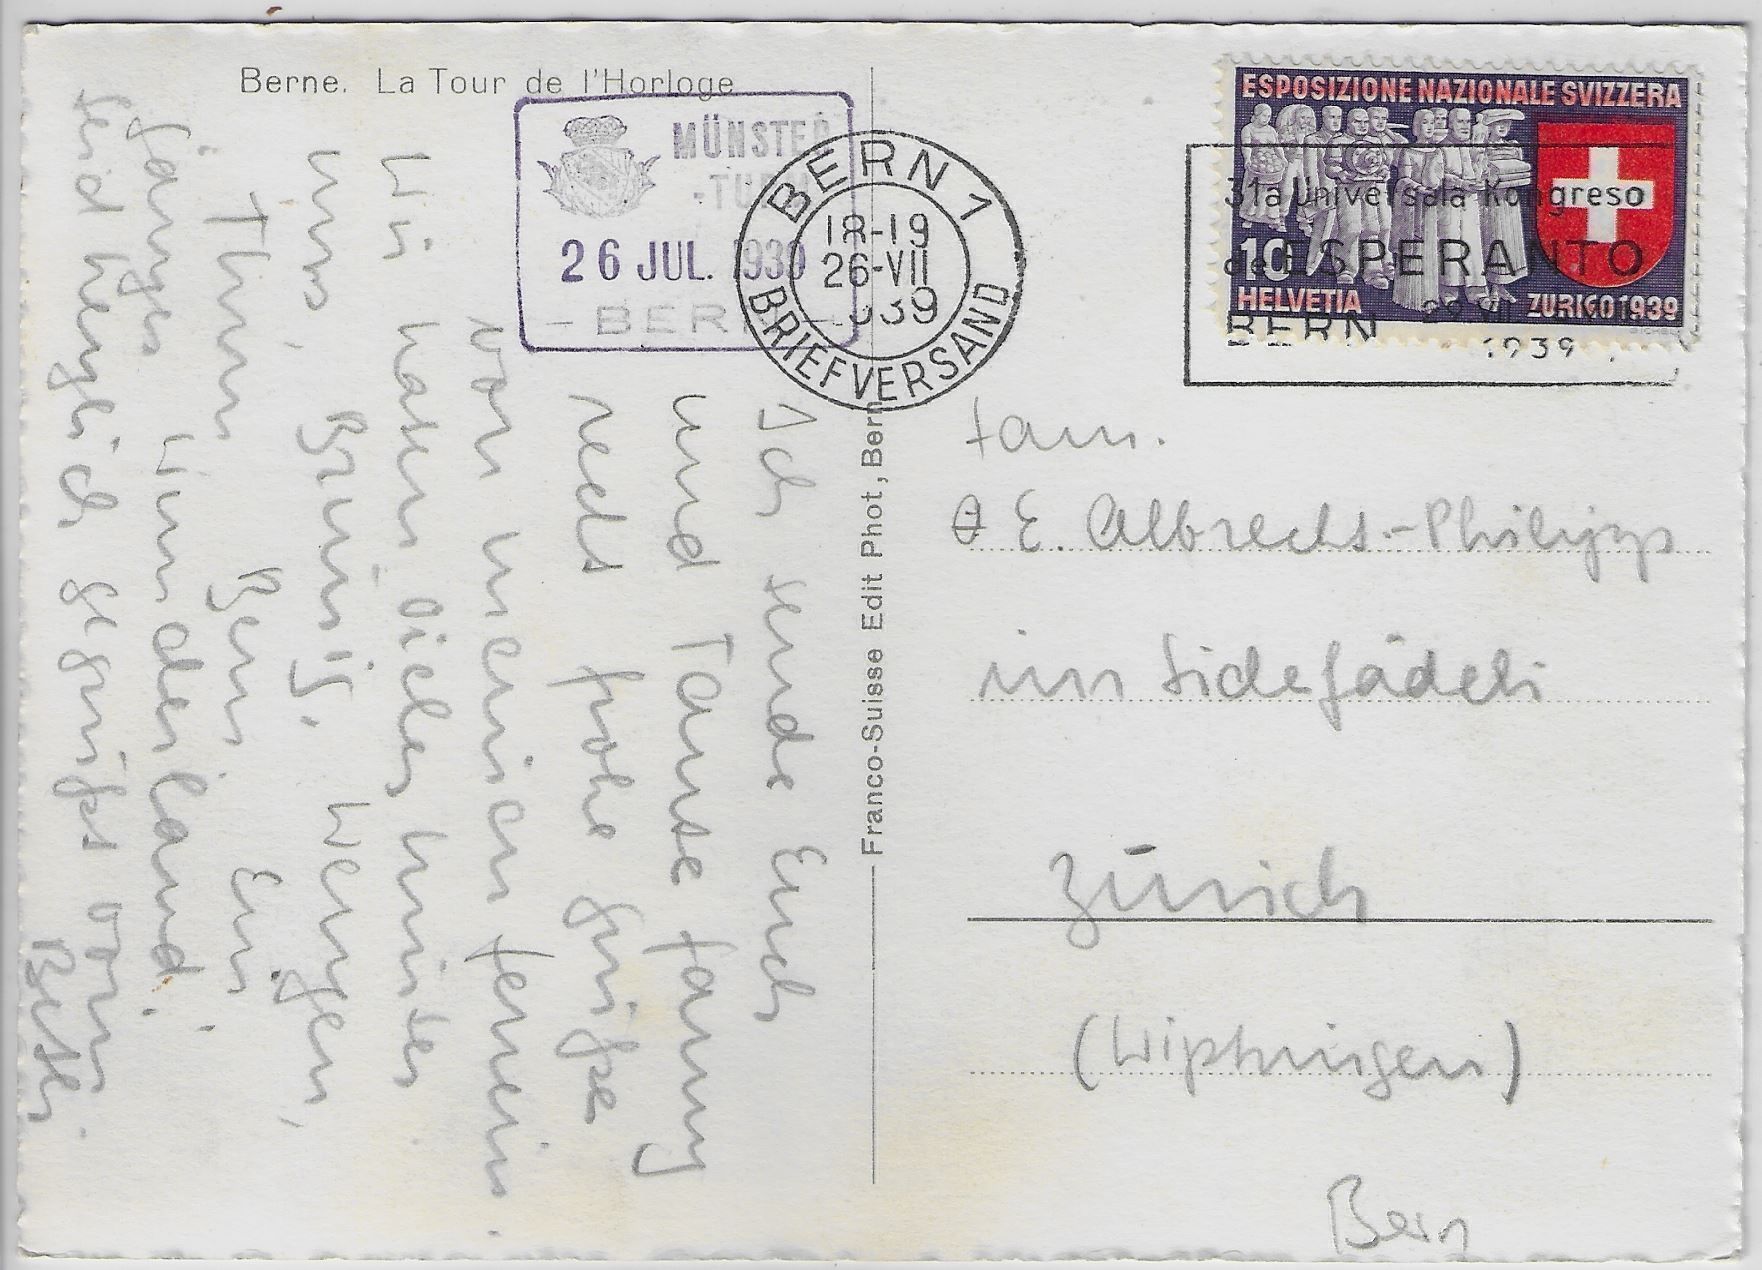 Berne. La Tour de l'Horloge
MÜNSTER
-TURM
26 JUL. 1939
- BERN -
BERN 1
18-19
26-VII
1939
BRIEFVERSAND
ESPOSIZIONE NAZIONALE SVIZZERA
10
HELVETIA
ZURIGO 1939
31a Universala Kongreso
de ESPERANTO
BERN
1939
Franco-Suisse Edit Phot, Bern
Ich sende Euch
und Tante Fanny
recht frohe Grüße
von meinen Ferien.
Wir haben vieles hinter
uns, Brünig, Wengen,
Thun Bern Ein
ganzes Wunderland!
Seid herzlich gegrüßt von
Fam.
E. Albrecht-Philipp
im Sidefädeli
Zürich
(Wipkingen)
Bern